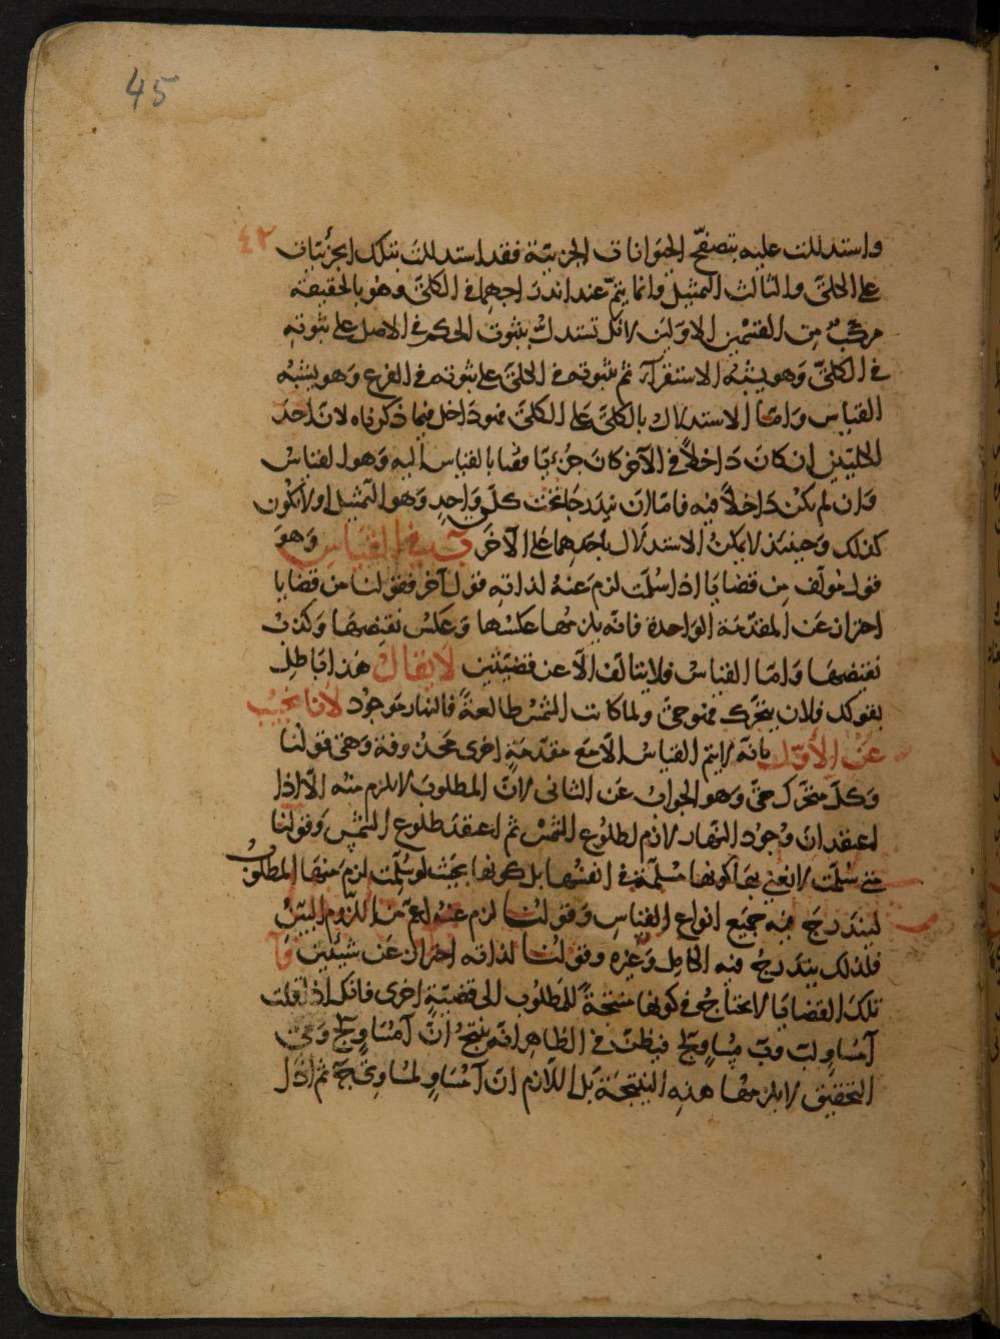 45
٤٢
واستدللت عليه بتصفح الحيوانات الجزيية فقد استدللت بتلك الجزئيات
على الكلي والثالث التمثيل وانما يتم عند اندراجهما في الكلي وهو بالحقيقة
مركب من القسمين الاولين لانك تستدل بثبوت الحكم في الاصل على ثبوته
في الكلي وهو يشبه الاستقرآء ثم بثبوته في الكلي على ثبوته في الفرع وهو يشبه
القياس واما الاستدلال بالكلي على الكلي فهو داخل فيما ذكرناه لان احد
الكليين ان كان داخلاً في الآخر كان جزئيا مقيا بالقياس اليه وهو القياس
وان لم يكن داخلاً فيه فاما ان يندرجا تحت كلي واحد وهو التمثيل او لا يكون
كذلك وحينئذ لا يمكن الاستدلال باحدهما على الآخر ب في القياس وهو
قول مولف من قضايا اذا سلمت لزم عنه لذاته قول آخر فقولنا من قضايا
احتراز عن المقدمة الواحدة فانه يلزمها عكسها وعكس نقيضها وكذب
نقيضها واما القياس فلا يتالف الا عن قضيتين لا يقال هذا باطل
بقولك فلان يتحرك فهو حي ولما كانت الشمس طالعةً فالنهار موجود لانا نجيب
عن الأول بانه لا يتم القياس الا مع مقدمة اخرى محذوفة وهي قولنا
وكل متحرك حي وهو الجواب عن الثاني لان المطلوب لا يلزم منه الا اذا
اعتقد ان وجود النهار لازم لطلوع الشمس ثم اعتقد طلوع الشمس وقولنا
متى سلمت لا نعني بها كونها مسلمة في انفسها بل كونها بحيث لو سلمت لزم منها المطلوب
ليندرج فيه جميع انواع القياس وقولنا لزم عنه اعم من اللزوم البين
فلذلك يندرج فيه الكامل وغيره وقولنا لذاته احتراز عن شيئين آ
تلك القضايا لا يحتاج في كونها منتجةً للمطلوب الى قضية اخرى فانك اذا قلت
آ مساو لب وب مساو لج فيظن في الظاهر انه ينتج ان آ مساو لج وفي
التحقيق لا يلزمها هذه النتيجة بل اللازم ان آ مساو لمساوي ج ثم اذا